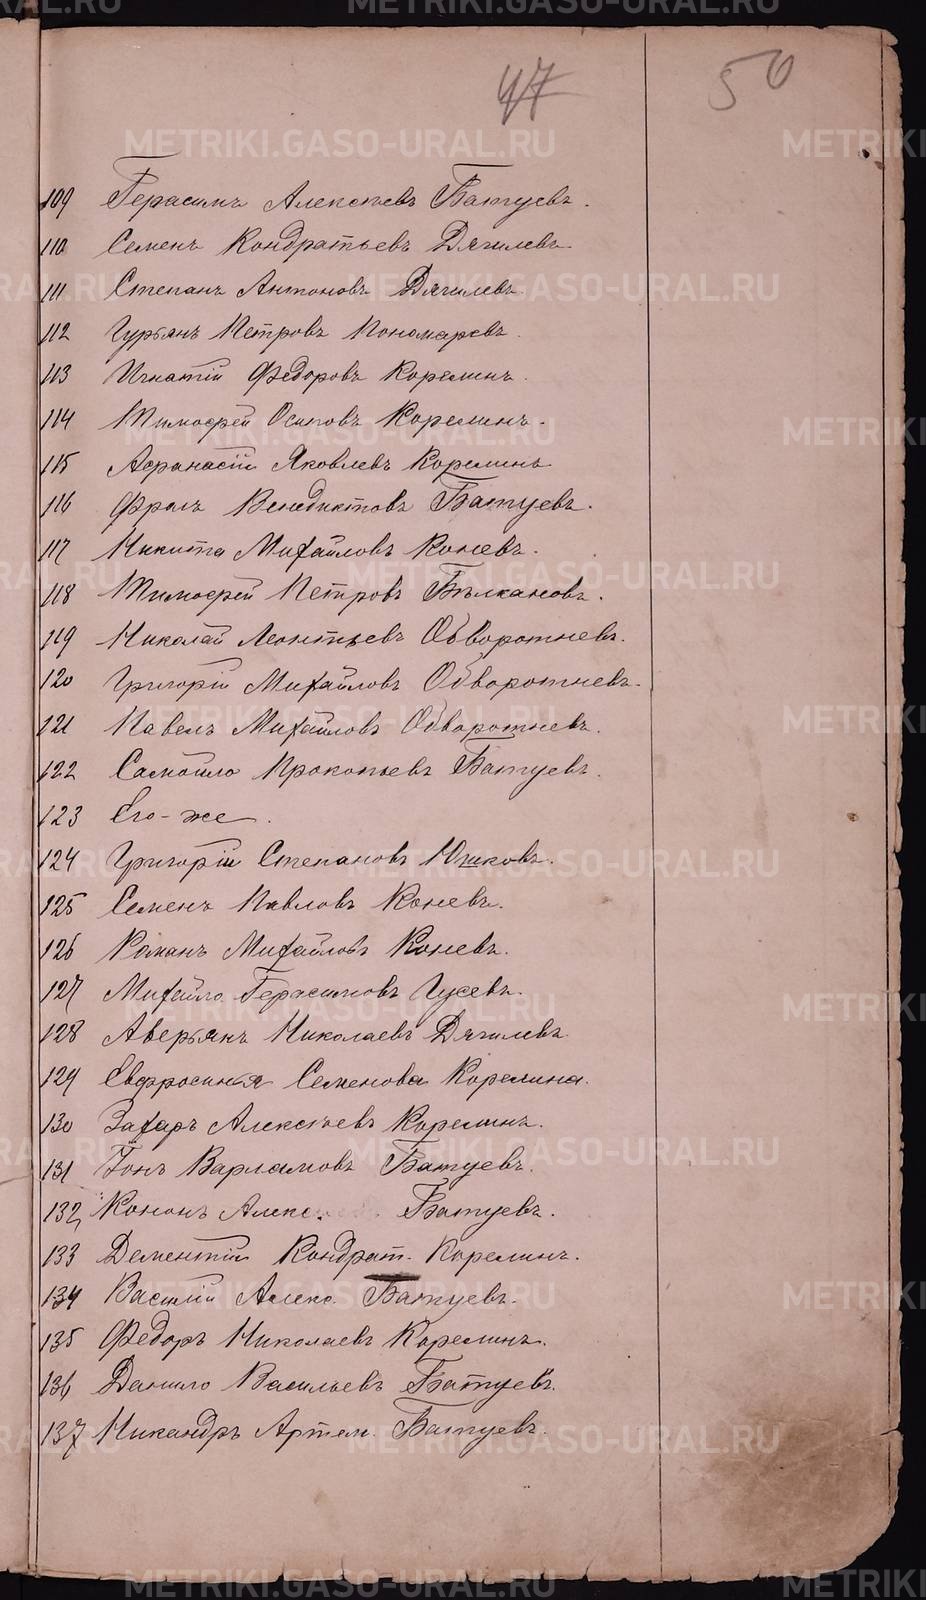 47 50
109 Герасимъ Алексѣевъ Батуевъ.
110 Семенъ Кондратьевъ Дягилевъ
111 Степанъ Антоновъ Дягилевъ.
112 Гурьянъ Петровъ Пономаревъ.
113 Игнатій Федоровъ Корелинъ.
114 Тимофей Осиповъ Корелинъ.
115 Афанасій Яковлевъ Корелинъ
116 Фролъ Венедиктовъ Батуевъ.
117 Никита Михайловъ Коневъ.
118 Тимофей Петровъ Бѣлкановъ.
119 Николай Леонтьевъ Обворотневъ.
120 Григорій Михайловъ Обворотневъ.
121 Павелъ Михайловъ Обворотневъ.
122 Самойло Прокопьевъ Батуевъ.
123 Его-же.
124 Григорій Степановъ Юшковъ.
125 Семенъ Павловъ Коневъ.
126 Романъ Михайловъ Коневъ.
127 Михайло Герасимовъ Гусевъ.
128 Аверьянъ Николаевъ Дягилевъ
129 Евфросинья Семенова Корелина.
130 Захаръ Алексѣевъ Корелинъ.
131 Іонъ Варламовъ Батуевъ.
132 Кононъ Алекс. Батуевъ.
133 Дементій Кондрат. Корелинъ.
134 Василій Алекс. Батуевъ.
135 Федоръ Николаевъ Корелинъ.
136 Данило Васильевъ Батуевъ.
137 Никандръ Артем. Батуевъ.
METRIKI.GASO-URAL.RU